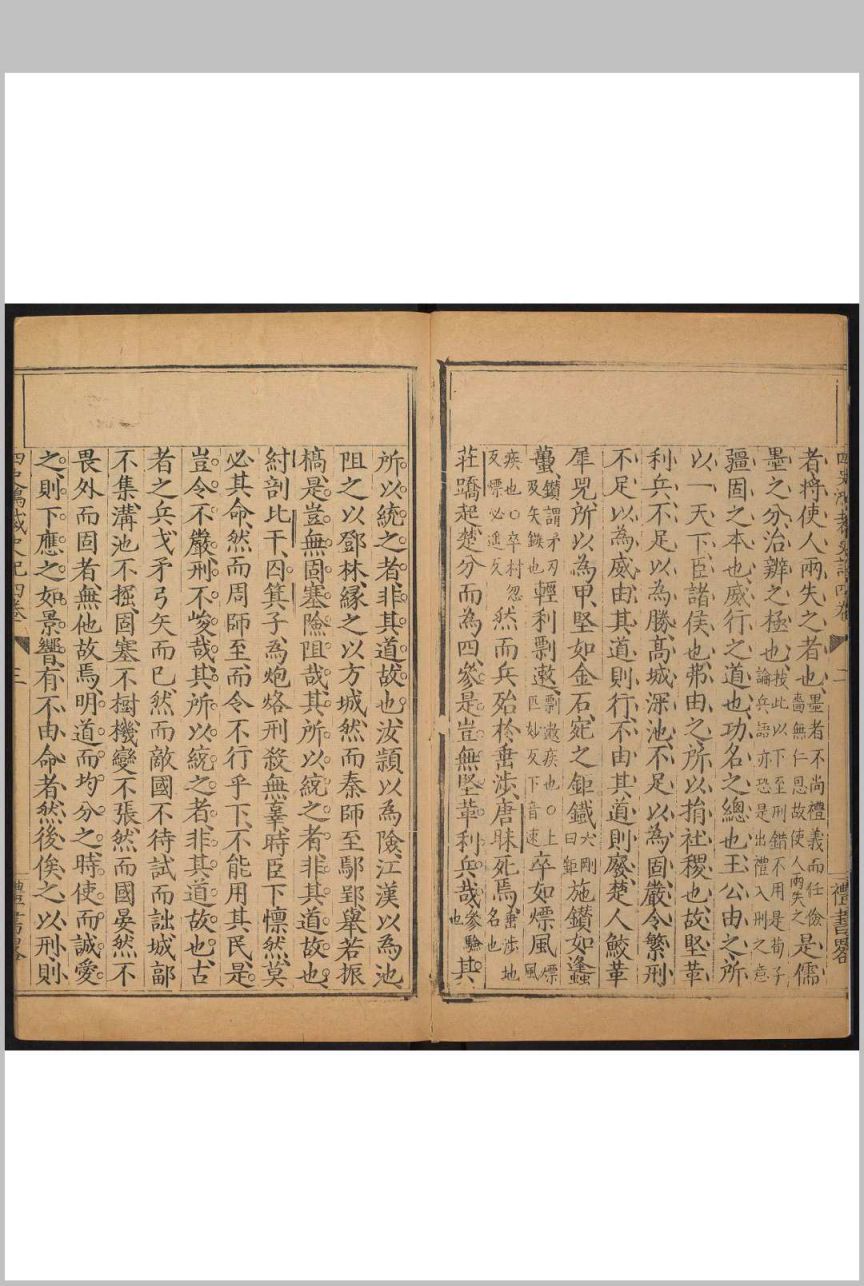 四史鴻裁史記四卷 二 禮書畧
者將使人兩失之者也墨者不尚禮義而任儉嗇無仁恩故使人兩失之是儒
墨之分治辨之極也按此以下至刑錯不用是荀子論兵語亦恐是出禮入刑之意
彊固之本也威行之道也功名之總也王公由之所
以一天下臣諸侯也弗由之所以捐社稷也故堅革
利兵不足以為勝高城深池不足以為固嚴令繁刑
不足以為威由其道則行不由其道則廢楚人鮫革
犀兕所以為甲堅如金石宛之鉅鐵大剛曰鉅施鑽如蠭
蠆鑽謂矛刃及矢鏃也輕利剽遫剽遫疾也○上匹妙反下音速卒如熛風熛風
疾也○卒村忽反熛必遙反然而兵殆於垂涉唐昧死焉垂涉地名也
莊蹻起楚分而為四參是豈無堅革利兵哉參驗也其
所以統之者非其道故也汝潁以為險江漢以為池
阻之以鄧林緣之以方城然而秦師至鄢郢舉若振
槁是豈無固塞險阻哉其所以統之者非其道故也
紂剖比干囚箕子為炮烙刑殺無辜時臣下懍然莫
必其命然而周師至而令不行乎下不能用其民是
豈令不嚴刑不峻哉其所以統之者非其道故也古
者之兵戈矛弓矢而已然而敵國不待試而詘城郭
不集溝池不掘固塞不樹機變不張然而國晏然不
畏外而固者無他故焉明道而均分之時使而誠愛
之則下應之如景響有不由命者然後俟之以刑則
四史鴻裁史記四卷 三 禮書畧